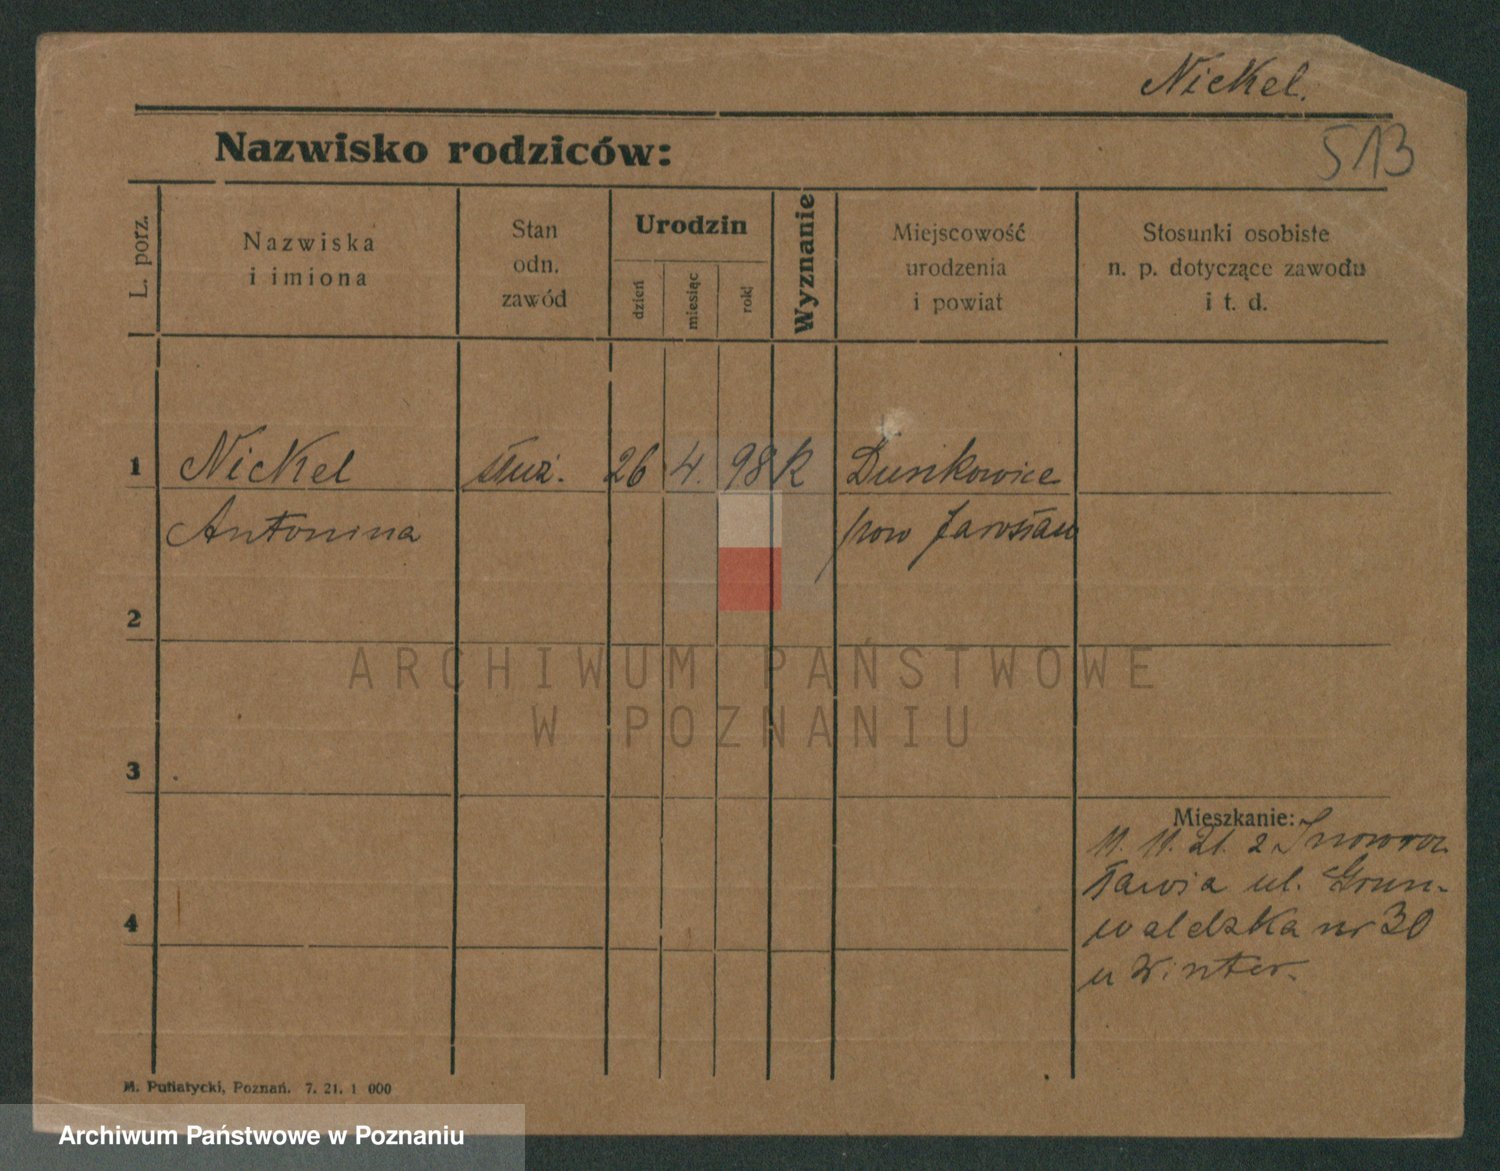 Nickel.
513
Nazwisko rodziców:
L. porz.
Nazwiska
i imiona
Stan
odn.
zawód
Urodzin
dzień
miesiąc
rok
Wyznanie
Miejscowość
urodzenia
i powiat
Stosunki osobiste
n. p. dotyczące zawodu
i t. d.
1 Nickel służ. 26 4. 98 k Dunkowice
Antonina pow Jarosław
2
ARCHIWUM PAŃSTWOWE
W POZNANIU
3
Mieszkanie:
11. 11. 21. z Inowroc
ławia ul. Grun-
4 waldzka nr 30
u Winter.
M. Putiatycki, Poznań. 7. 21. 1 000
Archiwum Państwowe w Poznaniu